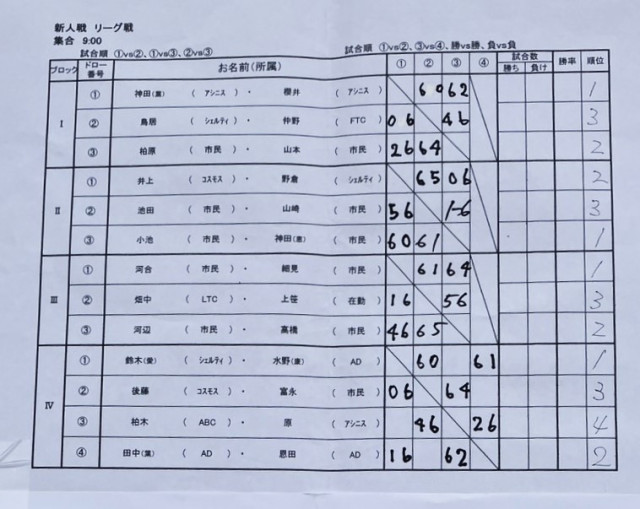 新人戦 リーグ戦
集合 9:00
試合順 ①vs②、①vs③、②vs③ 試合順 ①vs②、③vs④、勝vs勝、負vs負
ブロック ドロー番号 お名前(所属) ① ② ③ ④ 試合数 勝ち 負け 勝率 順位
Ⅰ ① 神田(憲) ( アシニス ) ・ 櫻井 ( アシニス ) 60 62 1
② 鳥居 ( シェルティ ) ・ 仲野 ( FTC ) 06 46 3
③ 柏原 ( 市民 ) ・ 山本 ( 市民 ) 26 64 2
Ⅱ ① 井上 ( コスモス ) ・ 野倉 ( シェルティ ) 65 06 2
② 池田 ( 市民 ) ・ 山崎 ( 市民 ) 56 1-6 3
③ 小池 ( 市民 ) ・ 神田(恵) ( 市民 ) 60 61 1
Ⅲ ① 河合 ( 市民 ) ・ 細見 ( 市民 ) 61 64 1
② 畑中 ( LTC ) ・ 上笹 ( 在勤 ) 16 56 3
③ 河辺 ( 市民 ) ・ 髙橋 ( 市民 ) 46 65 2
Ⅳ ① 鈴木(愛) ( シェルティ ) ・ 水野(康) ( AD ) 60 61 1
② 後藤 ( コスモス ) ・ 富永 ( 市民 ) 06 64 3
③ 柏木 ( ABC ) ・ 原 ( アシニス ) 46 26 4
④ 田中(葉) ( AD ) ・ 恩田 ( AD ) 16 62 2